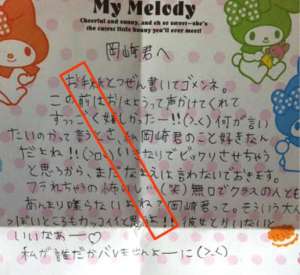 My Melody
Cheerful and sunny, and oh so sweet―she's
the cutest little bunny you'll ever meet!
岡崎君へ
お手紙とつぜん書いてゴメンネ。
この前はおはようって声かけてくれて
すっごく嬉しかったー!!(>_<)何が言い
たいのかって言うとさ、私岡崎君のこと好きなん
だよね!!いきなりでビックリさせちゃう
と思うから、まだなまえは言わないでおきます。
フラれちゃうの怖いし…(笑)無口でクラスの人とも
あんまり喋らないよね?岡崎君って。そういう大人
っぽいところもカッコイイと思う!!彼女とかいないと
いいなぁー♡
私が誰だかバレませんよーに(>_<)